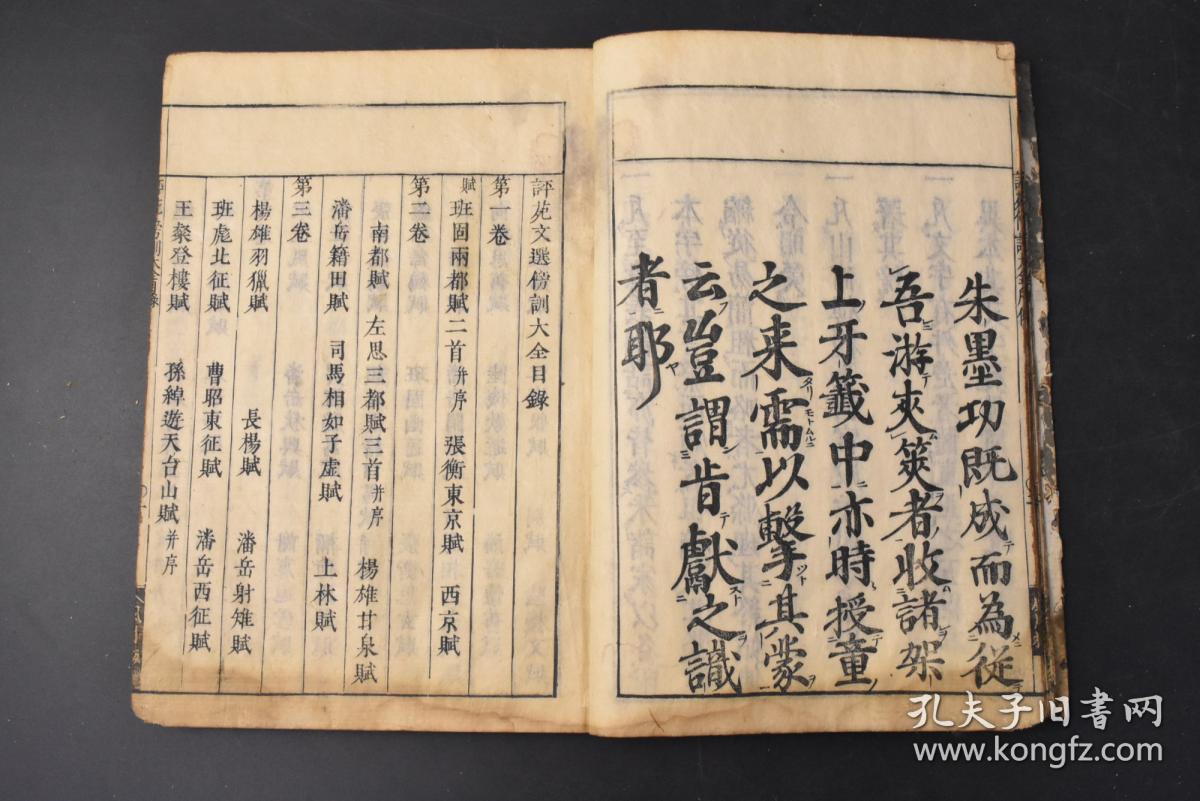 朱墨功既成而為從
吾游夾筴者收諸架
上牙籤中亦時授童
之来需以擊其蒙
云豈謂肯獻之識
者耶
評苑文選傍訓大全目錄
第一卷
賦
班固兩都賦二首并序 張衡東京賦 西京賦
第二卷
南都賦 左思三都賦三首并序 楊雄甘泉賦
潘岳籍田賦 司馬相如子虛賦 上林賦
第三卷
楊雄羽獵賦 長楊賦 潘岳射雉賦
班彪北征賦 曹昭東征賦 潘岳西征賦
王粲登樓賦 孫綽遊天台山賦并序
孔夫子旧书网
www.kongfz.com